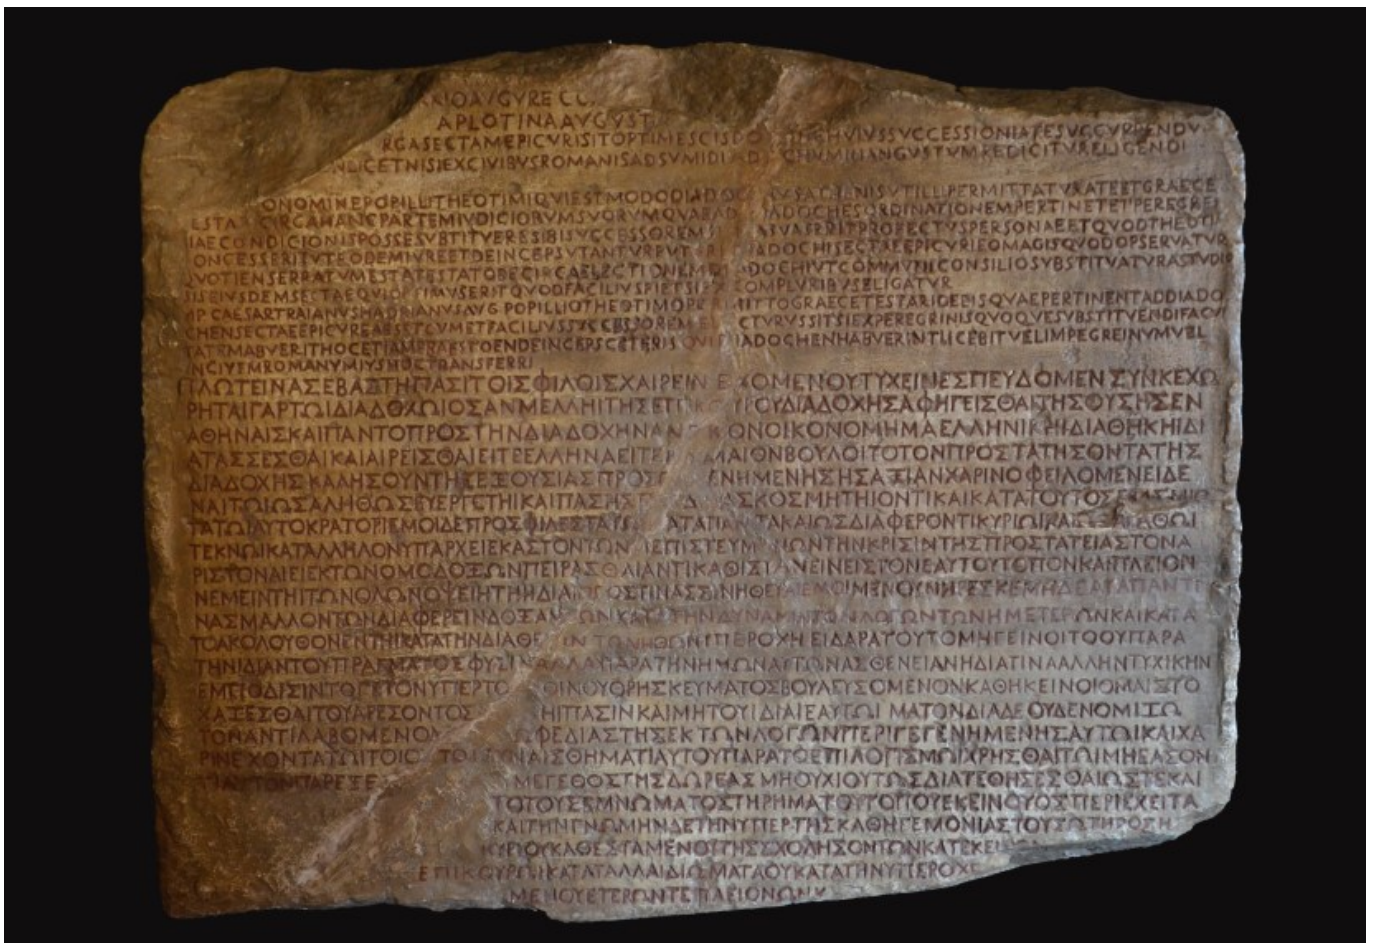 RIOAVGVRECO
APLOTINAAVGVST
RGASECTAMEPICVRISITOPTIMESCISDO CHVIVSSVCCESSIONIATESVCCVRRENDV
LICETNISIEXCIVIBVSROMANISADSVMIDIAD CHVMINANGVSTVMREDICITVRELIGENDI
ONOMINEPOPILLITHEOTIMIQVIESTMODODIADO HENISVTILLIPERMITTATVRATEETGRAECE
ESTA CIRCAHANCPARTEMIVDICIORVMSVORVMQVAEAD IADOCHESORDINATIONEMPERTINETETPEREGREI
IAECONDICIONISPOSSESVBTITVERESIBISVCCESSOREMS ASVASERITPROFECTVSPERSONAEETQVODTHEOTI
ONCESSERITVTEODEMIVREETDEINCEPSVTANTVR ADOCHISECTAEEPICVRIEOMAGISQVODOPSERVATVR
QVOTIENSERRATVMESTATESTATORECIRCAELECTIONEM DOCHIVTCOMMVNICONSILIOSVBSTITVATVRASTVDIO
SISEIVSDEMSECTAEQVIOPTIMVSERITQVODFACILIVSFIETSI COMPLVRIBVSELIGATVR
MPCAESARTRAIANVSHADRIANVSAVGPOPILLIOTHEOTIMOPERMITTOGRAECETESTARIDEEISQVAEPERTINENTADDIADO
CHENSECTAEEPICVREAESETCVMETFACILIVSSVCCESSOREM CTVRVSSITSIEXPEREGRINISQVOQVESVBSTITVENDIFACVL
TATEMABVERITHOCETIAMPRAESTOENDEINCEPSCETERISQVI DIADOCHENHABVERINTLICEBITVELIMPEGREINVMVEL
NCIVEMROMANVMIVSHOCTRANSFERRI
ΠΛΩΤΕΙΝΑΣΕΒΑΣΤΗΠΑΣΙΤΟΙΣΦΙΛΟΙΣΧΑΙΡΕΙΝ ΕΧΟΜΕΝΟΥΤΥΧΕΙΝΕΣΠΕΥΔΟΜΕΝΣΥΝΚΕΧΩ
ΡΗΤΑΙΓΑΡΤΩΙΔΙΑΔΟΧΩΙΟΣΑΝΜΕΛΛΗΙΤΗΣΕΠΙΚΟΥΡΟΥΔΙΑΔΟΧΗΣΑΦΗΓΕΙΣΘΑΙΤΗΣΟΥΣΗΣΕΝ
ΑΘΗΝΑΙΣΚΑΙΠΑΝΤΟΠΡΟΣΤΗΝΔΙΑΔΟΧΗΝΑΝ ΟΝΟΙΚΟΝΟΜΗΜΑΕΛΛΗΝΙΚΗΙΔΙΑΘΗΚΗΙΔΙ
ΑΤΑΣΣΕΣΘΑΙΚΑΙΑΙΡΕΙΣΘΑΙΕΙΤΕΕΛΛΗΝΑΕΙΤΕ ΜΑΙΟΝΒΟΥΛΟΙΤΟΤΟΝΠΡΟΣΤΑΤΗΣΟΝΤΑΤΗΣ
ΔΙΑΔΟΧΗΣΚΑΛΗΣΟΥΝΤΗΣΕΞΟΥΣΙΑΣΠΡΟΣ ΕΝΗΜΕΝΗΣΗΣΑΞΙΑΝΧΑΡΙΝΟΦΕΙΛΟΜΕΝΕΙΔΕ
ΝΑΙΤΩΙΩΣΑΛΗΘΩΣΕΥΕΡΓΕΤΗΙΚΑΙΠΑΣΗΣΠ ΑΣΚΟΣΜΗΤΗΙΟΝΤΙΚΑΙΚΑΤΑΤΟΥΤΟΣΕΒΑΣΜΙΩ
ΤΑΤΩΙΑΥΤΟΚΡΑΤΟΡΙΕΜΟΙΔΕΠΡΟΣΦΙΛΕΣΤΑΤΩ ΑΤΑΠΑΝΤΑΚΑΙΩΣΔΙΑΦΕΡΟΝΤΙΚΥΡΙΩΙΚΑΙ ΑΓΑΘΩΙ
ΤΕΚΝΩΙΚΑΤΑΛΛΗΛΟΝΥΠΑΡΧΕΙΕΚΑΣΤΟΝΤΩΝ ΠΕΠΙΣΤΕΥΜ ΝΩΝΤΗΝΚΡΙΣΙΝΤΗΣΠΡΟΣΤΑΤΕΙΑΣΤΟΝΑ
ΡΙΣΤΟΝΑΙΕΙΕΚΤΩΝΟΜΟΔΟΞΩΝΠΕΙΡΑΣΘΑΙΑΝΤΙΚΑΘΙΣΤΑΝΕΙΝΕΙΣΤΟΝΕΑΥΤΟΥΤΟΠΟΝΚΑΙΠΛΕΙΟΝ
ΝΕΜΕΙΝΤΗΙΤΩΝΟΛΩΝΟΨΕΙΗΤΗΙΔΙΑΠΡΟΣΤΙΝΑΣΣΥΝΗΘΕΙΑΙ
ΝΑΣΜΑΛΛΟΝΤΩΝΔΙΑΦΕΡΕΙΝΔΟΞΑ ΤΗΝΔΥΝΑΜΙΝΤΩΝΛΟΓΩΝΤΩΝΗΜΕΤΕΡΩΝΚΑΙΚΑΤΑ
ΤΟΑΚΟΛΟΥΘΟΝΕΝΤΗΙΚΑΤΑΤΗΝΔΙΑΘΕΣΙΝΤΩΝΗΘΩΝΥΠΕΡΟΧΗΕΙΔΑΡΑΤΟΥΤΟΜΗΓΕΙΝΟΙΤΟΟΥΠΑΡΑ
ΤΗΝΙΔΙΑΝΤΟΥΠΡΑΓΜΑΤΟΣΦΥΣΙΝΑΛΛΑΠΑΡΑΤΗΝΗΜΩΝΑΥΤΩΝΑΣΘΕΝΕΙΑΝΗΔΙΑΤΙΝΑΑΛΛΗΝΤΥΧΙΚΗΝ
ΕΜΠΟΔΙΣΙΝΤΟΓΕΤΟΝΥΠΕΡΤΟ ΟΙΝΟΥΘΡΗΣΚΕΥΜΑΤΟΣΒΟΥΛΕΥΣΟΜΕΝΟΝΚΑΘΗΚΕΙΝΟΙΟΜΑΙΣΤΟ
ΧΑΞΕΣΘΑΙΤΟΥΑΡΕΣΟΝΤΟΣ ΗΙΠΑΣΙΝΚΑΙΜΗΤΟΥΙΔΙΑΙΕΑΥΤΩΙ ΜΑΤΟΝΔΙΑΔΕΟΥΔΕΝΟΜΙΞΩ
ΤΟΝΑΝΤΙΛΑΒΟΜΕΝΟΝ ΩΦΕΔΙΑΣΤΗΣΕΚΤΩΝΛΟΓΩΝΠΕΡΙΓΕΓΕΝΗΜΕΝΗΣΑΥΤΩΙΚΑΙΧΑ
ΡΙΝΕΧΟΝΤΑ ΣΥΝΑΙΣΘΗΜΑΤΙΑΥΤΟΥΠΑΡΑΤΟΕΠΙΛΟΓΙΣΜΩΙΧΡΗΣΘΑΙΤΩΙΜΗΕΑΣΟΝ
ΤΙΑΥΤΟΝΠΑΡΕΞΕ ΜΕΓΕΘΟΣΤΗΣΔΩΡΕΑΣΜΗΟΥΧΙΟΥΤΩΣΔΙΑΤΕΘΗΣΕΣΘΑΙΩΣΤΕΚΑΙ
ΤΟΤΟΥΣΕΜΝΩΜΑΤΟΣΤΗΡΗΜΑΤΟΥΤΟΠΟΥΕΚΕΙΝΟΥΟΣΠΕΡΙΕΧΕΙΤΑ
ΚΑΙΤΗΝΓΝΩΜΗΝΔΕΤΗΝΥΠΕΡΤΗΣΚΑΘΗΓΕΜΟΝΙΑΣΤΟΥΣΩΤΗΡΟΣΗ
ΚΥΡΙΟΥΚΑΘΕΣΤΑΜΕΝΟΙΤΗΣΣΧΟΛΗΣΟΝΤΩΝΚΑΤΕΚΕΙ
ΕΠΙΚΟΥΡΩΙΚΑΤΑΤΑΛΛΑΙΔΙΩΜΑΤΑΟΥΚΑΤΑΤΗΝΥΠΕΡΟΧΕ
ΜΕΝΟΥΕΤΕΡΩΝΤΕΠΛΕΙΟΝΩΝ